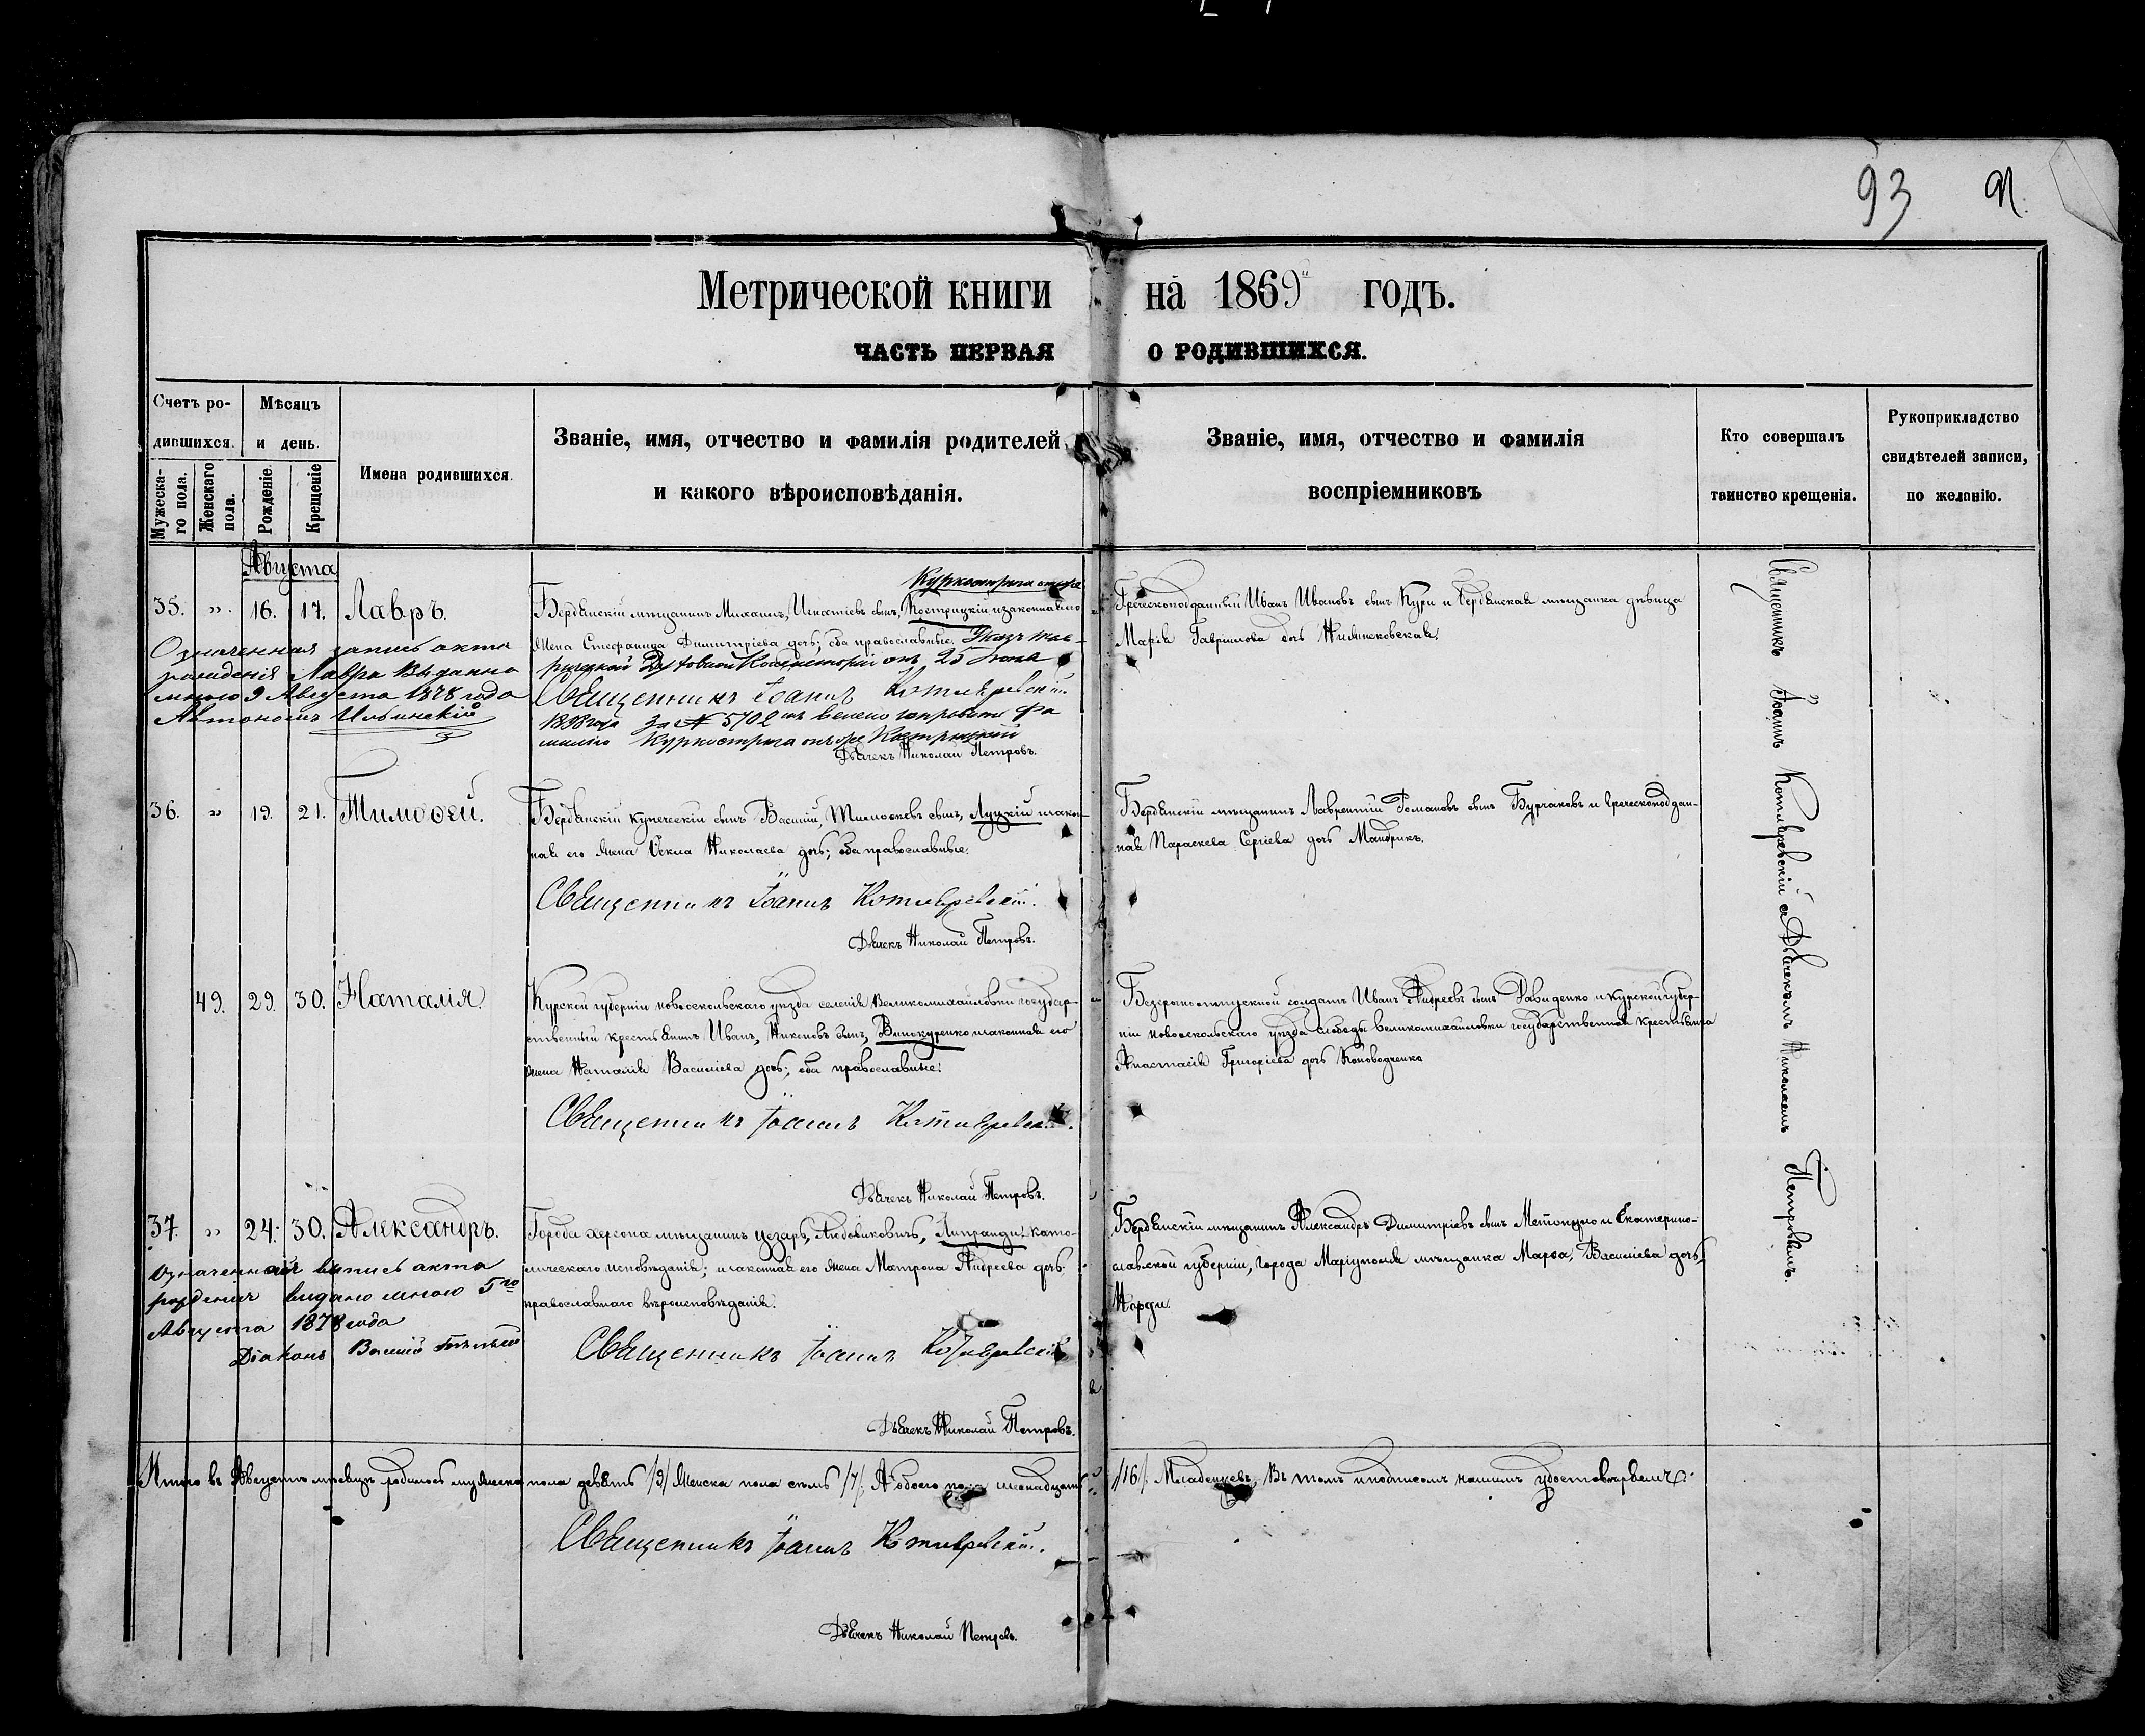 93
Метрической книги на 1869 годъ.
ЧАСТЬ ПЕРВАЯ О РОДИВШИХСЯ.
Счетъ ро-
дившихся.
Мѣсяцъ
и день.
Мужеска-
го пола.
Женскаго
пола.
Рожденіе.
Крещеніе
Имена родившихся.
Званіе, имя, отчество и фамилія родителей
и какого вѣроисповѣданія.
Званіе, имя, отчество и фамилія
воспріемниковъ
Кто совершалъ
таинство крещенія.
Рукоприкладство
свидѣтелей записи,
по желанію.
Августа
35. " 16. 17. Лавръ.
Означенная запись акта
рожденія Лавра выдана
мною 9 Августа 1878 года
Автономъ Ильинскій
Бердянскій мѣщанинъ Михаилъ, Игнатіевъ сынъ, Кострицкій и законная его
жена Стефанида Димитріева дочь; оба православные. Указъ Тав-
рической Духовной Консисторіи отъ 25
Священникъ Іоаннъ Котляревскій.
1898 года за № 5702 велено исправить фа
милію
Дьячекъ Николай Петровъ.
Греческоподданный Иванъ Ивановъ сынъ Кури и бердянская мѣщанка дѣвица
Марія Гаврилова дочь
36. " 19. 21. Тимоѳей.
Бердянскій купеческій сынъ Василій, Тимоѳеевъ сынъ, Луцкій и закон-
ная его жена Ѳекла Николаева дочь; оба православные.
Священникъ Іоаннъ Котляревскій.
Дьячекъ Николай Петровъ.
Бердянскій мѣщанинъ Лаврентій Романовъ сынъ Бурлаковъ и греческоподдан-
ная Параскева Сергіева дочь Мандрикъ.
49. 29. 30. Наталія.
Курской губерніи новооскольскаго уѣзда селенія Великомихайловки государ-
ственный крестьянинъ Иванъ, Никоновъ сынъ, Винокуренко и законная его
жена Наталія Василіева дочь; оба православные.
Священникъ Іоаннъ Котляревскій.
Дьячекъ Николай Петровъ.
Безсрочноотпускной солдатъ Иванъ Андреевъ сынъ Давиденко и курской губер-
ніи новооскольскаго уѣзда слободы великомихайловки государственная крестьянка
Анастасія Григоріева дочь Коноводченко
37. " 24. 30. Александръ.
Означенной выпись акта
рожденія выдано мною 5го
Августа 1878 года
Діаконъ Василій
Города херсона мѣщанинъ Цезарь, Людовиковичъ, Липранди като-
лическаго исповѣданія; и законная его жена Матрона Андреева дочь
православнаго вѣроисповѣданія.
Священникъ Іоаннъ Котляревскій
Дьячекъ Николай Петровъ.
Бердянскій мѣщанинъ Александръ Димитріевъ сынъ и Екатерино-
славской губерніи, города Маріуполя мѣщанка Марѳа, Василіева дочь
Морди.
Священникъ Іоаннъ Котляревскій съ Дьячекомъ Николаемъ Петровымъ.
Итого въ Августѣ мѣсяцѣ родилось мужеска пола девять /9/ Женска пола семь /7/. А обоего пола шестнадцать /16/. Младенцевъ. Въ томъ и подписомъ нашимъ удостовѣряемъ:
Священникъ Іоаннъ Котляревскій.
Дьячекъ Николай Петровъ.